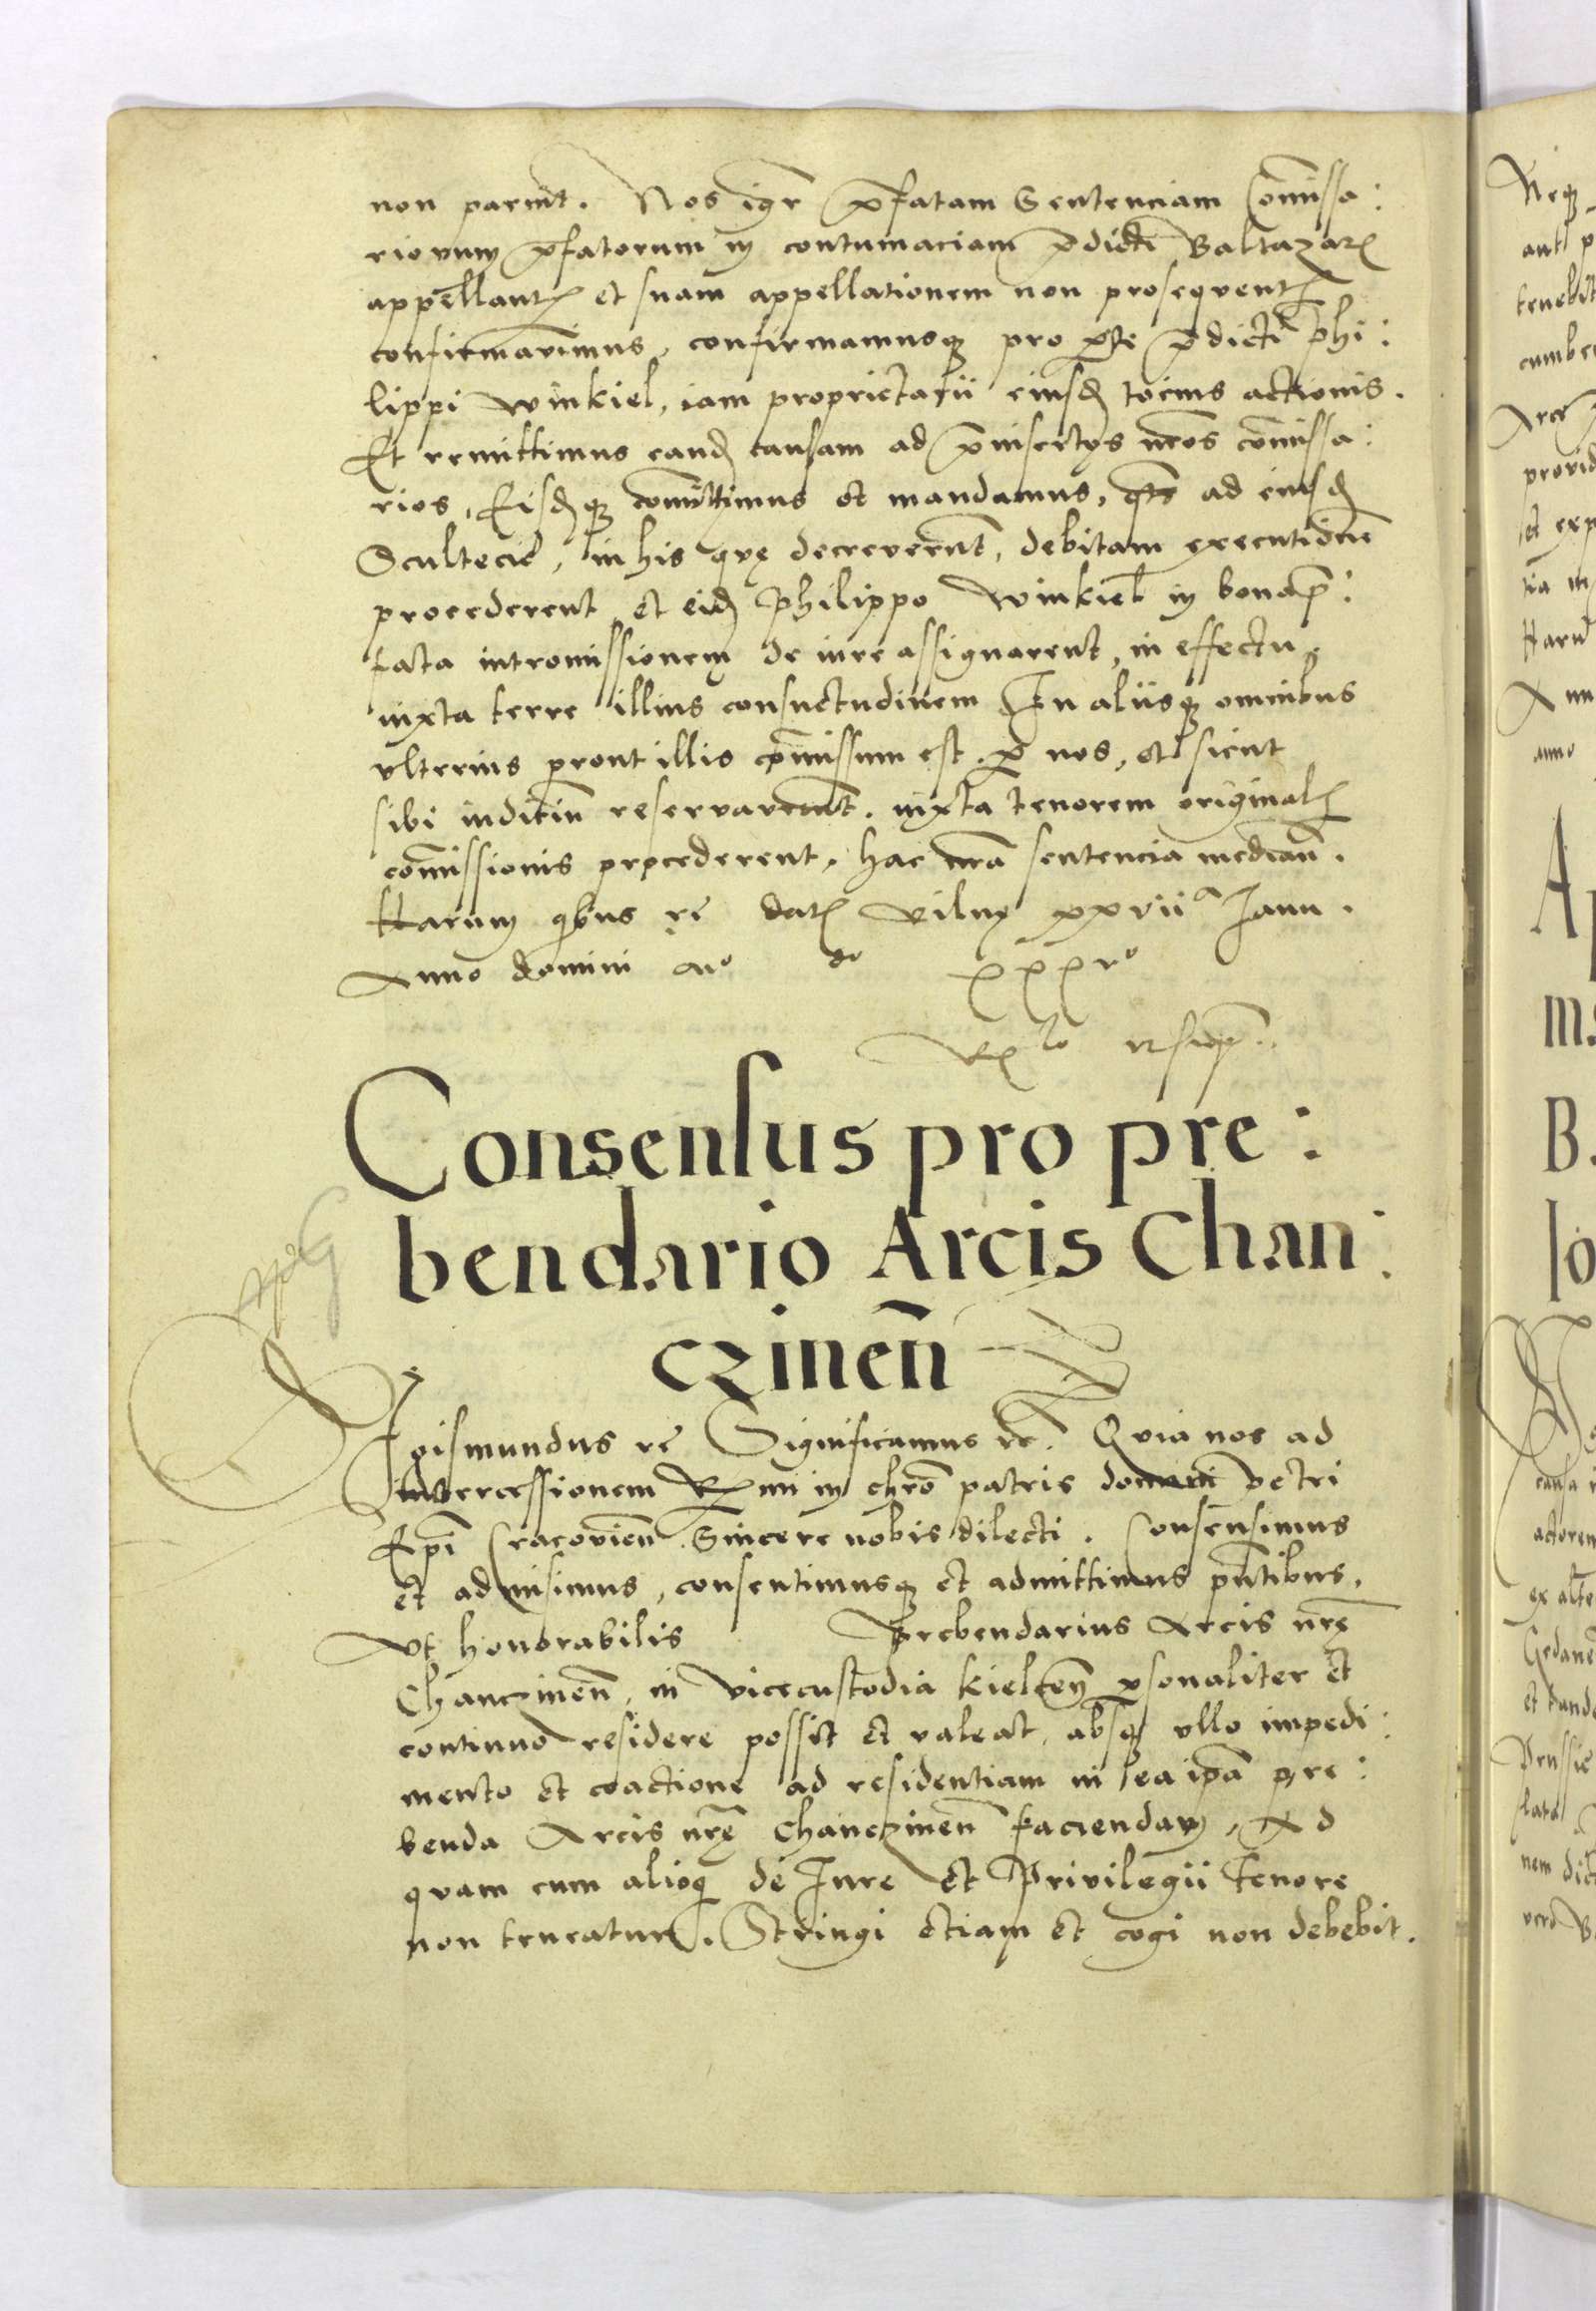 non paruit. Nos igr̄ p̄fatam Sentenciam Com̄issa:
riorum p̄fatorum in contumaciam p̄dicti Baltazarꝭ
appellantꝭ et suam appellationem non prosequentꝭ
confirmavimus, confirmamusqꝫ pro ꝑte p̄dicti Phi:
lippi Winkiel, iam proprietarii eiusdꝫ tocius actionis.
Et remittimus eandꝫ causam ad p̄insertos nr̄os com̄issa:
rios, Eisdꝫqꝫ com̄ittimus et mandamus, qts ad eiusdꝫ
Scultecie, in his quę decreverunt, debitam executionē
procederent et eidꝫ Philippo Winkiel in bona p̄:
fata intromissionem de iure assignarent, in effectu,
iuxta terre illius consuetudinem In aliisqꝫ omnibus
ulterius prout illis com̄issum est. ꝑ nos, et sicut
sibi iuditiū reservaverunt. iuxta tenorem originalꝭ
com̄issionis procederent, hac nr̄a sentencia median̄.
Harum qibus rē datꝭ Vilnę xxviiª Janu.
Anno domini Mo do xxxvo
Consensus pro pre:
bendario Arcis Chan:
czinen̄
Sigismundus rē Significamus rē. Quia nos ad
intercessionem Rx̄mi in chrō patris domini Petri
Ep̄i Cracovien̄ Sincere nobis dilecti. Consensimus
et admisimus, consentimusqꝫ et admittimus pn̄tibus,
Ut honorabilis Prebendarius Arcis nr̄ę
Chanczinen̄, in vicecustodia Kielcen̄ ꝑsonaliter et
continuo residere possit et valeat, absqꝫ ullo impedi:
mento et coactione ad residentiam in ea ip̄a pre:
benda Arcis nr̄ę Chanczinen̄ faciendam, Ad
quam cum alioqi de Iure et Privilegii tenore
non teneatur. Stringi etiam et cogi non debebit.